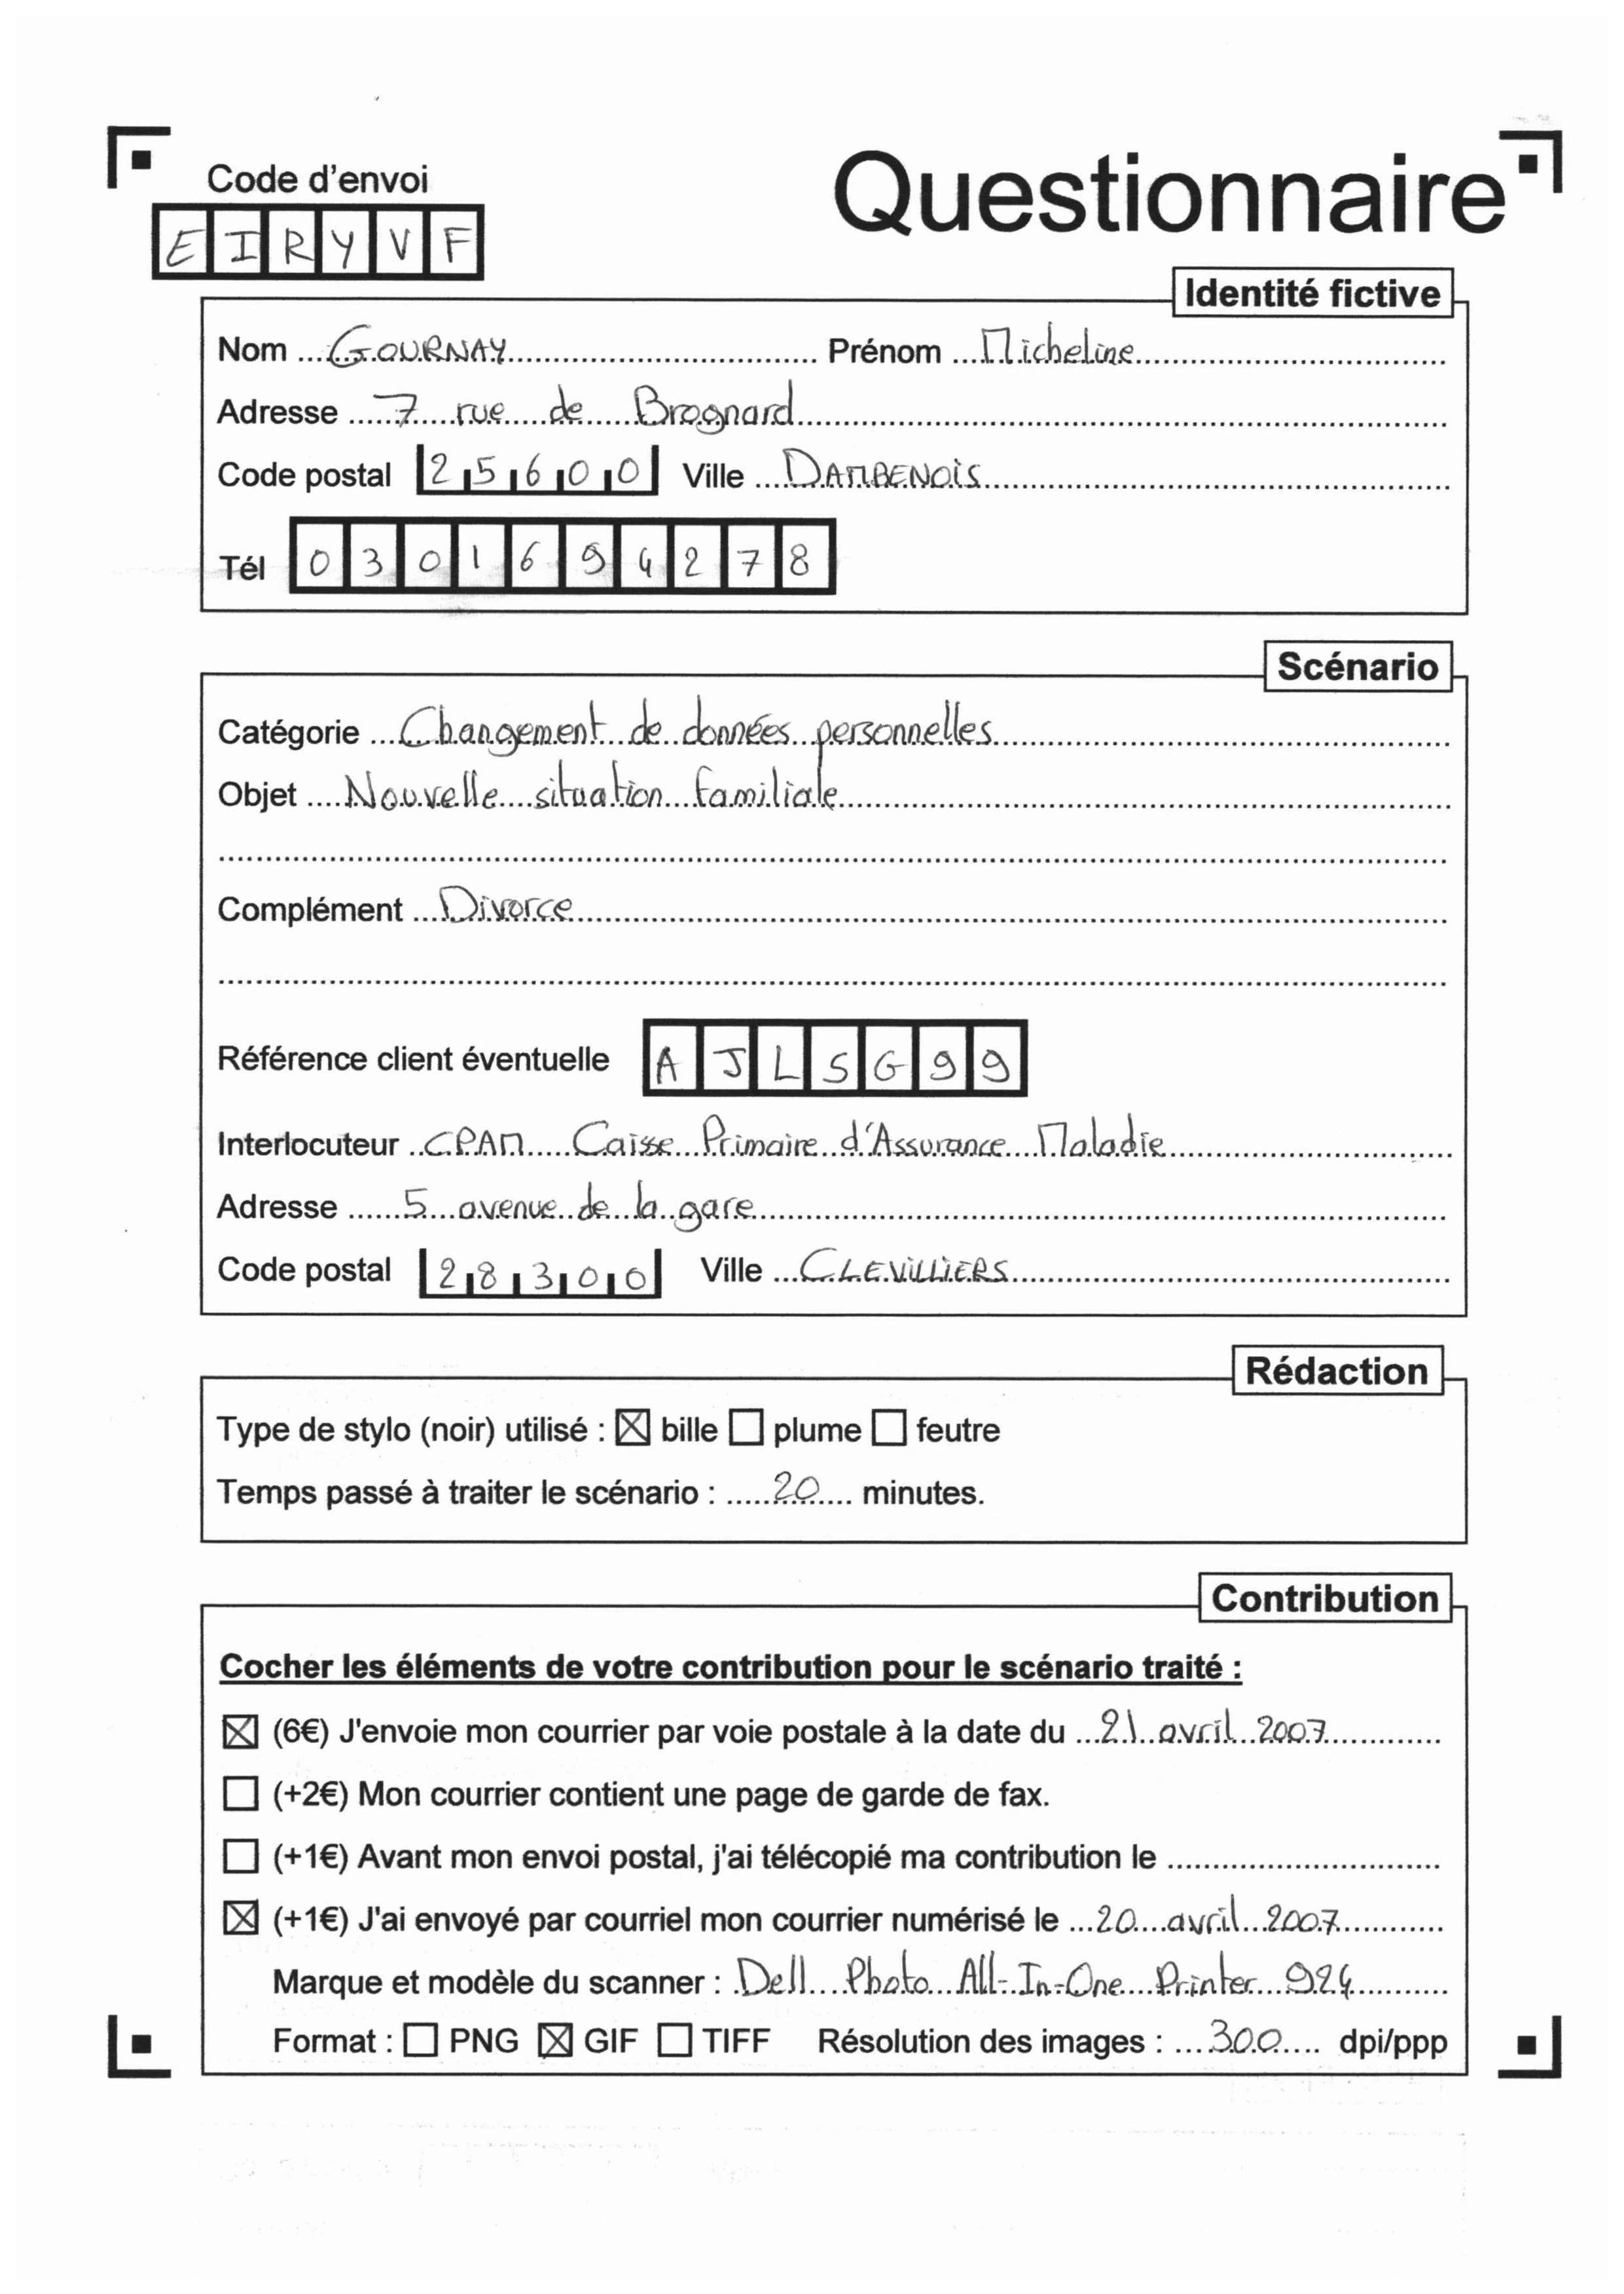 Code d'envoi
Questionnaire
EIRYVF
Identité fictive
Nom GOURNAY Prénom Micheline
Adresse 7 rue de Brognard
Code postal 25600 Ville DAMBENOIS
Tél 0301694278
Scénario
Catégorie Changement de données personnelles
Objet Nouvelle situation familiale
Complément Divorce
Référence client éventuelle AJLSG99
Interlocuteur CPAM Caisse Primaire d'Assurance Maladie
Adresse 5 avenue de la gare
Code postal 28300 Ville CLEVILLIERS
Rédaction
Type de stylo (noir) utilisé : ☒ bille ☐ plume ☐ feutre
Temps passé à traiter le scénario : 20 minutes.
Contribution
Cocher les éléments de votre contribution pour le scénario traité :
☒ (6€) J'envoie mon courrier par voie postale à la date du 21 avril 2007
☐ (+2€) Mon courrier contient une page de garde de fax.
☐ (+1€) Avant mon envoi postal, j'ai télécopié ma contribution le
☒ (+1€) J'ai envoyé par courriel mon courrier numérisé le 20 avril 2007
Marque et modèle du scanner : Dell Photo All-In-One Printer 924
Format : ☐ PNG ☒ GIF ☐ TIFF Résolution des images : 300 dpi/ppp